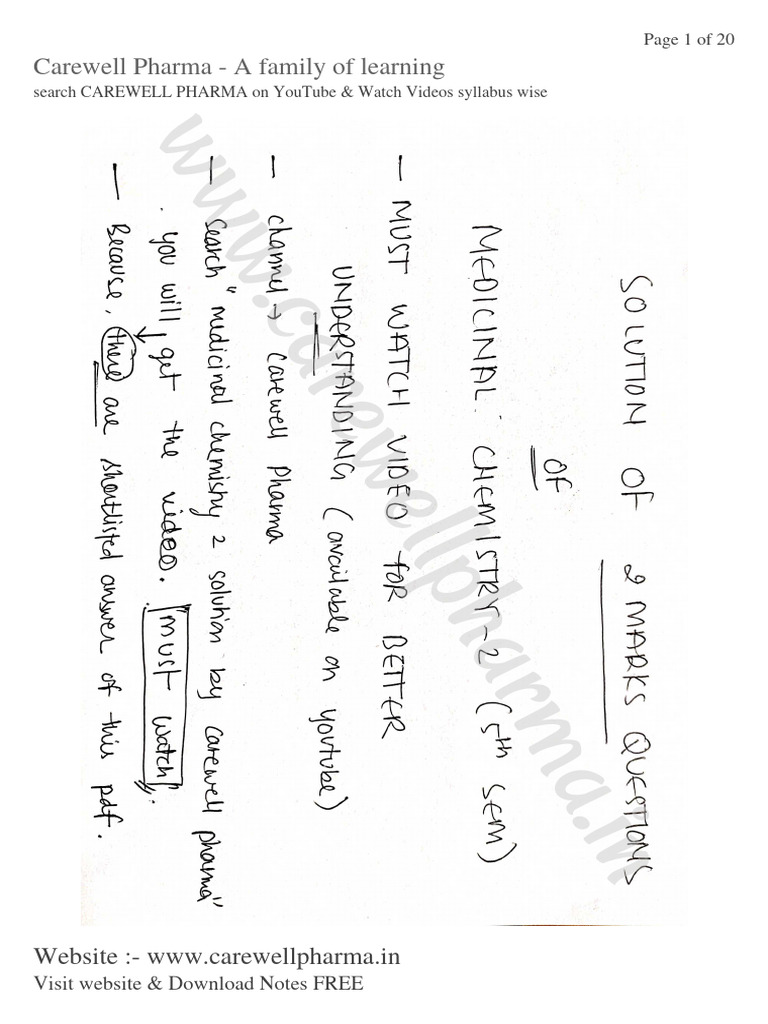 Page 1 of 20
Carewell Pharma - A family of learning
search CAREWELL PHARMA on YouTube & Watch Videos syllabus wise
www.carewellpharma.in
SOLUTION OF 2 MARKS QUESTIONS
OF
MEDICINAL CHEMISTRY-2 (5th SEM)
— MUST WATCH VIDEO FOR BETTER
UNDERSTANDING (available on youtube)
— channel → carewell Pharma
— Search "medicinal chemistry 2 solution by carewell pharma"
. you will get the video. "must watch".
— Because, there are shortlisted answer of this pdf.
Website :- www.carewellpharma.in
Visit website & Download Notes FREE